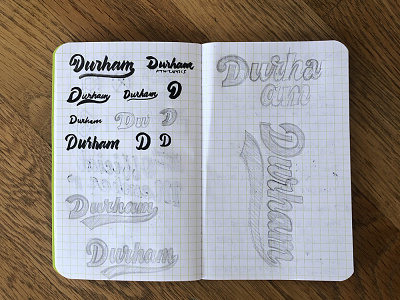 Durham
Durham
ATHLETICS
Durham
Durham
D
Durham
Dur
D
Durham
D
D
Durham
Durham
Durha
am
Durham